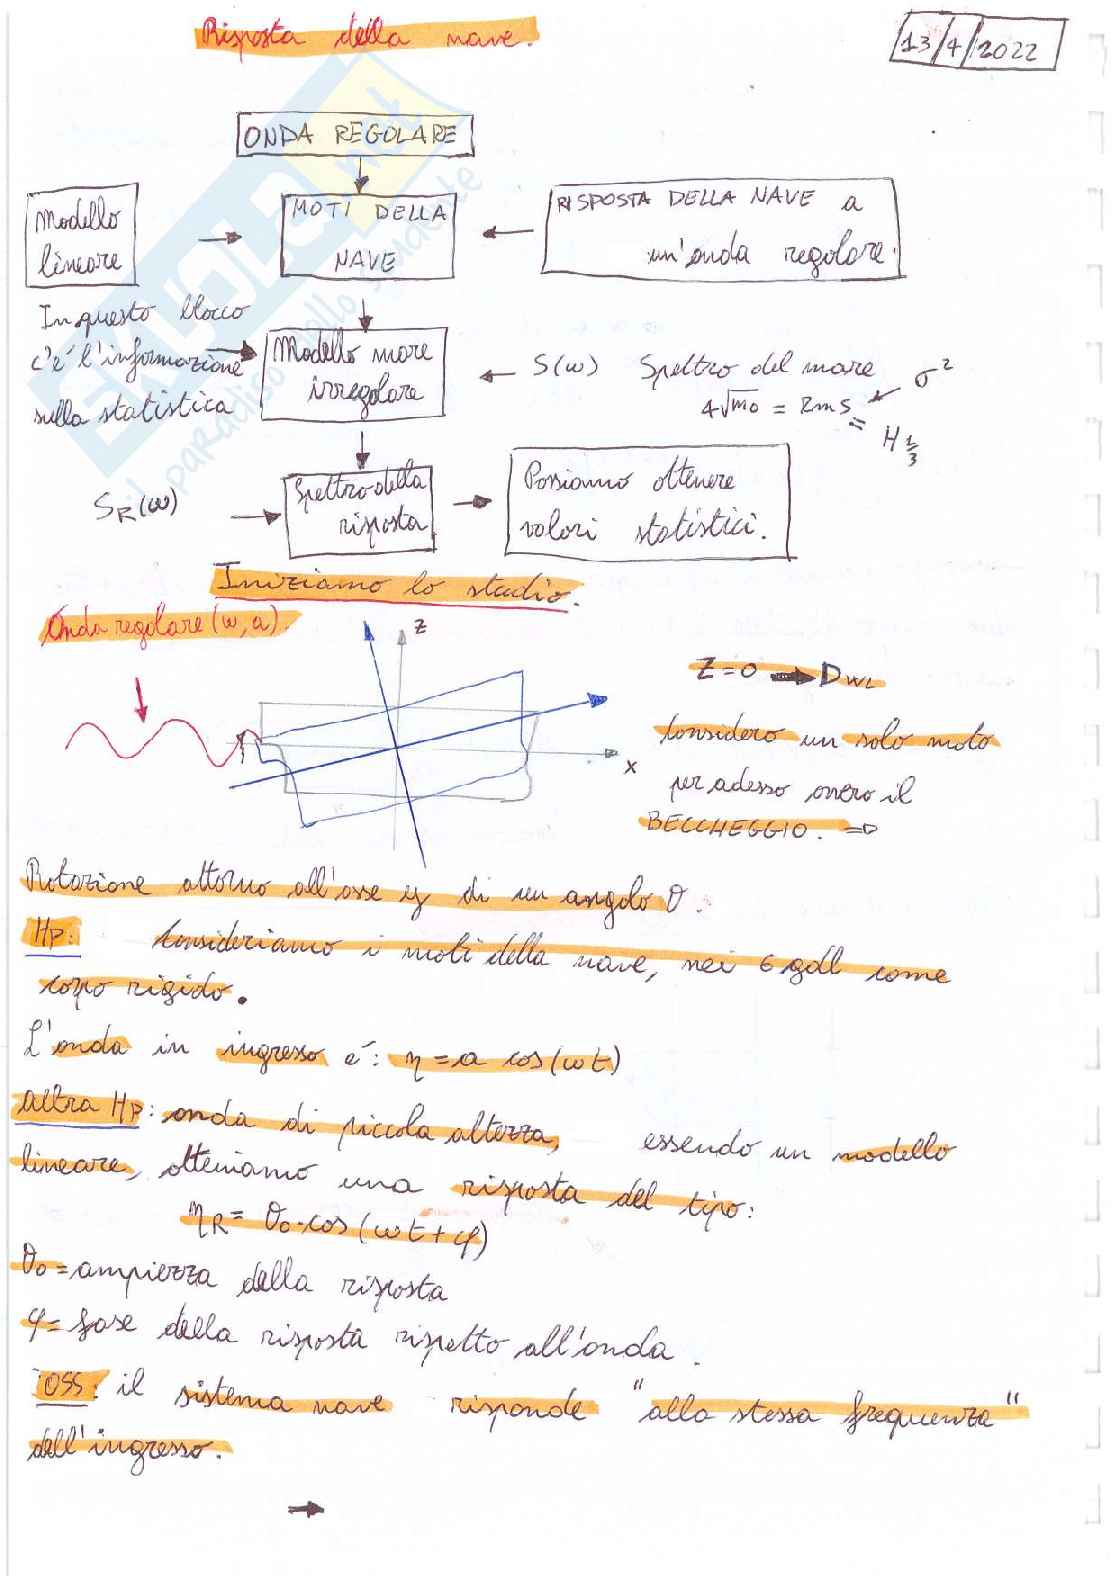 Risposta della nave.
13/4/2022
ONDA REGOLARE
Modello
lineare
MOTI DELLA
NAVE
RISPOSTA DELLA NAVE a
un'onda regolare.
In questo blocco
c'é l'informazione
sulla statistica
Modello mare
irregolare
S(ω) Spettro del mare
4√m0 = RMS σ²
= H 1/3
SR(ω)
Spettro della
risposta
Possiamo ottenere
valori statistici.
Iniziamo lo studio.
Onda regolare (ω, a).
z
x
Z=0 → DWL
Considero un solo moto
per adesso ovvero il
BECCHEGGIO. ⇒
Rotazione attorno all'asse y di un angolo θ.
Hp: Consideriamo i moti della nave, nei 6 gdl come
corpo rigido.
L'onda in ingresso é: η = a cos(ωt)
altra Hp: onda di piccola altezza, essendo un modello
lineare, otteniamo una risposta del tipo:
ηR = θ0·cos(ωt+φ)
θ0 = ampiezza della risposta
φ = fase della risposta rispetto all'onda.
OSS: il sistema nave risponde "alla stessa frequenza"
dell'ingresso.
→
SKUOLA.net
il paradiso dello studente